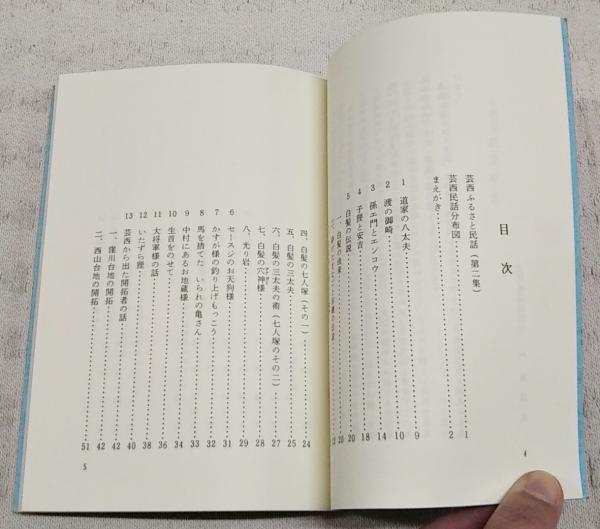 目次
芸西ふるさと民話（第二集）……1
芸西民話分布図……2
まえがき
1 道家の八太夫……9
2 渡の御崎……10
3 孫エ門とエンコウ……14
4 子狸と安吉……18
5 白髪の伝説……20
一、白髪の由来……20
4
四、白髪の七人塚（その一）……24
五、白髪の三太夫……25
六、白髪の三太夫の術（七人塚のその二）……27
七、白髪の穴神様……28
八、光り岩……29
6 セースジのお天狗様……31
7 かすが様の釣り上げもっこう……32
8 馬を捨てたいられの亀さん……33
9 中村にあるお地蔵様……34
10 生首をのせて……36
11 大将軍様の話……38
12 いたずら狸……40
13 芸西から出た開拓者の話……42
一、窪川台地の開拓……42
二、西山台地の開拓……51
5